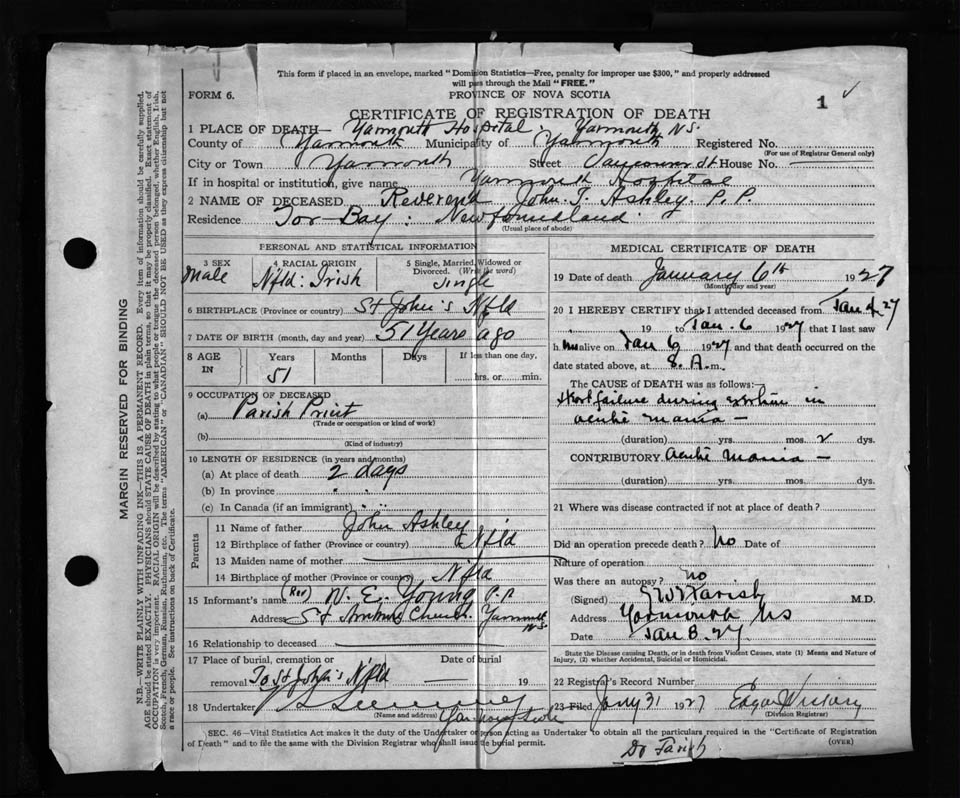 This form if placed in an envelope, marked "Dominion Statistics—Free, penalty for improper use $300," and properly addressed
will pass through the Mail "FREE."
FORM 6.
PROVINCE OF NOVA SCOTIA
1 ✓
CERTIFICATE OF REGISTRATION OF DEATH
1 PLACE OF DEATH— Yarmouth Hospital Yarmouth N.S.
County of Yarmouth Municipality of Yarmouth Registered No.
(For use of Registrar General only)
City or Town Yarmouth Street Vancouver St House No. —
If in hospital or institution, give name Yarmouth Hospital
2 NAME OF DECEASED Reverend John J. Ashley. P.P.
Residence Tor-Bay: Newfoundland.
(Usual place of abode)
PERSONAL AND STATISTICAL INFORMATION
3 SEX Male
4 RACIAL ORIGIN Nfld: Irish
5 Single, Married, Widowed or Divorced. (Write the word) Single
6 BIRTHPLACE (Province or country) St John's Nfld
7 DATE OF BIRTH (month, day and year) 51 Years ago
8 AGE IN Years Months Days If less than one day,
51 hrs. or min.
9 OCCUPATION OF DECEASED
(a) Parish Priest
(Trade or occupation or kind of work)
(b)
(Kind of industry)
10 LENGTH OF RESIDENCE (in years and months)
(a) At place of death 2 days
(b) In province " "
(c) In Canada (if an immigrant) " "
Parents
11 Name of father John Ashley
12 Birthplace of father (Province or country) Nfld
13 Maiden name of mother —
14 Birthplace of mother (Province or country) Nfld
15 Informant's name (Rev) N. E. Young P.P
Address St Ambrose Church Yarmouth N.S.
16 Relationship to deceased —
17 Place of burial, cremation or removal Date of burial
To St John's Nfld — 19
18 Undertaker
(Name and address)
MEDICAL CERTIFICATE OF DEATH
19 Date of death January 6th 1927
(Month, day and year)
20 I HEREBY CERTIFY that I attended deceased from Jan 4 27
19 to Jan. 6 1927 that I last saw
h im alive on Jan 6 1927 and that death occurred on the
date stated above, at 8. A. m.
The CAUSE of DEATH was as follows:
Heart failure during in
acute mania —
(duration) yrs. mos. 2 dys.
CONTRIBUTORY acute mania —
(duration) yrs. mos. dys.
21 Where was disease contracted if not at place of death?
Did an operation precede death? No Date of
Nature of operation
Was there an autopsy? no
(Signed) Farish M.D.
Address Yarmouth NS
Date Jan 8. 27.
State the Disease causing Death, or in death from Violent Causes, state (1) Means and Nature of
Injury, (2) whether Accidental, Suicidal or Homicidal.
22 Registrar's Record Number 1
23 Filed Jany 31 1927 Edgar
(Division Registrar)
SEC. 46—Vital Statistics Act makes it the duty of the Undertaker or person acting as Undertaker to obtain all the particulars required in the "Certificate of Registration
of Death" and to file the same with the Division Registrar who shall issue the burial permit.
(OVER)
Dr Farish
MARGIN RESERVED FOR BINDING
N.B.—WRITE PLAINLY WITH UNFADING INK—THIS IS A PERMANENT RECORD. Every item of information should be carefully supplied.
AGE should be stated EXACTLY. PHYSICIANS should STATE CAUSE OF DEATH in plain terms, so that it may be properly classified. Exact statement of
OCCUPATION is very important. RACIAL ORIGIN will be described by stating to what people or tongue the deceased person belonged, whether English, Irish,
Scotch, French, German, Russian, Ruthenian, etc. The terms "AMERICAN" or "CANADIAN" SHOULD NOT BE USED as they express citizenship but not
a race or people. See instructions on back of Certificate.